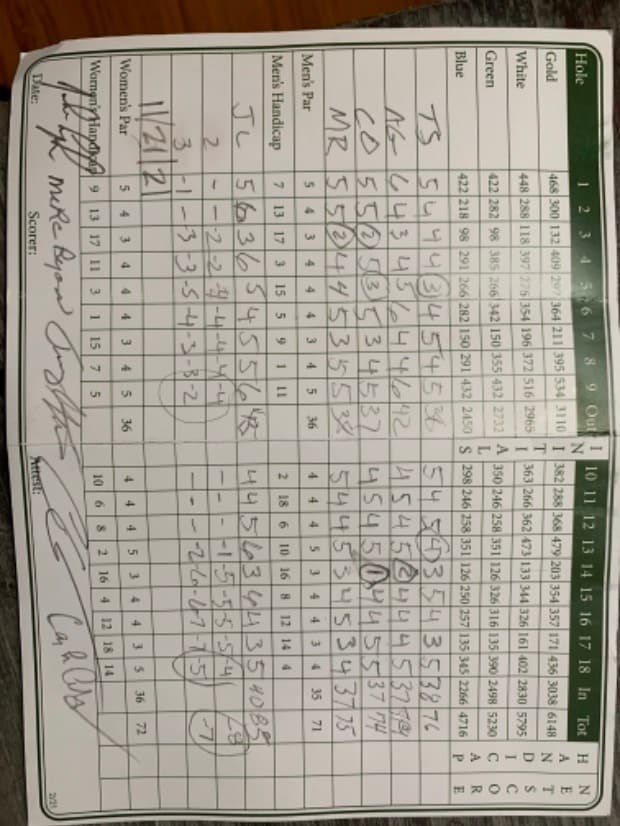 Hole 1 2 3 4 5 6 7 8 9 Out INITIALS 10 11 12 13 14 15 16 17 18 In Tot HANDICAP NET SCORE
Gold 468 300 132 409 297 364 211 395 534 3110 382 288 368 479 203 354 357 171 436 3038 6148
White 448 288 118 397 276 354 196 372 516 2965 363 266 362 473 133 344 326 161 402 2830 5795
Green 422 282 98 385 266 342 150 355 432 2732 350 246 258 351 126 326 316 135 390 2498 5230
Blue 422 218 98 291 266 282 150 291 432 2450 298 246 258 351 126 250 257 135 345 2266 4716
TS 5 4 4 4 3 4 5 4 5 38 5 4 5 4 3 5 4 3 5 38 76
AG 6 4 3 4 5 6 4 4 6 42 4 5 4 5 2 4 4 4 5 37 79
CO 5 5 2 5 3 5 3 4 5 37 4 5 4 5 1 4 4 5 5 37 74
MR 5 5 2 4 4 5 3 5 5 38 5 4 4 5 3 4 5 3 4 37 75
Men's Par 5 4 3 4 4 4 3 4 5 36 4 4 4 5 3 4 4 3 4 35 71
Men's Handicap 7 13 17 3 15 5 9 1 11 2 18 6 10 16 8 12 14 4
JL 5 6 3 6 5 4 5 5 6 45 4 4 5 6 3 4 4 3 5 40 85
2 - - -2 -2 -4 -4 -4 -4 -4 - - - -1 -5 -5 -5 -5 -4
3 -1 - -3 -3 -5 -4 -3 -3 -2 - - - -2 -6 -6 -7 -7 -5 -7
11/21/21
Women's Par 5 4 3 4 4 4 3 4 5 36 4 4 4 5 3 4 4 3 5 36 72
Women's Handicap 9 13 17 11 3 1 15 7 5 10 6 8 2 16 4 12 18 14
Date: Scorer: Attest: